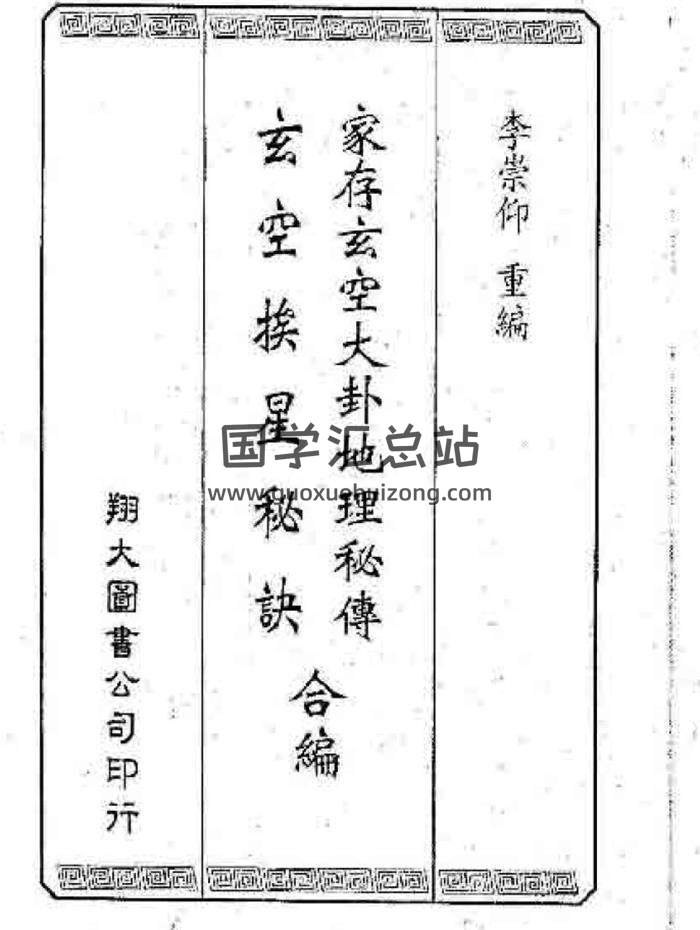 李崇仰 重編
家存玄空大卦地理秘傳
玄空挨星秘訣
合編
翔大圖書公司印行
国学汇总站
www.guoxuehuizong.com